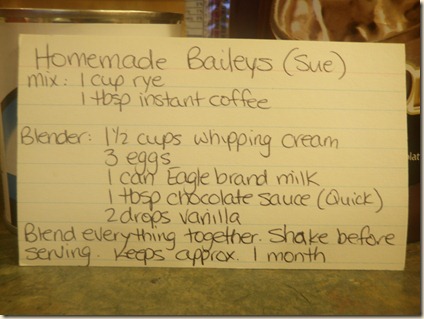 Homemade Baileys (Sue)
mix: 1 cup rye
1 tbsp instant coffee
Blender: 1½ cups whipping cream
3 eggs
1 can Eagle brand milk
1 tbsp chocolate sauce (Quick)
2 drops vanilla
Blend everything together. Shake before
serving. Keeps approx. 1 month